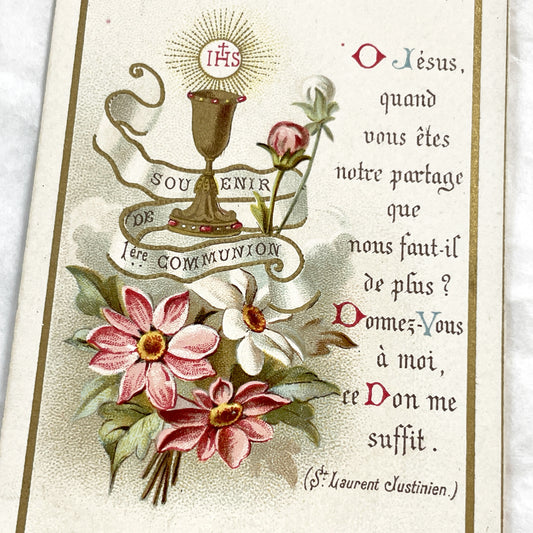 IHS
SOUVENIR
DE
1ère COMMUNION
O Jésus,
quand
vous êtes
notre partage
que
nous faut-il
de plus ?
Donnez-Vous
à moi,
ce Don me
suffit.
(St. Laurent Justinien.)